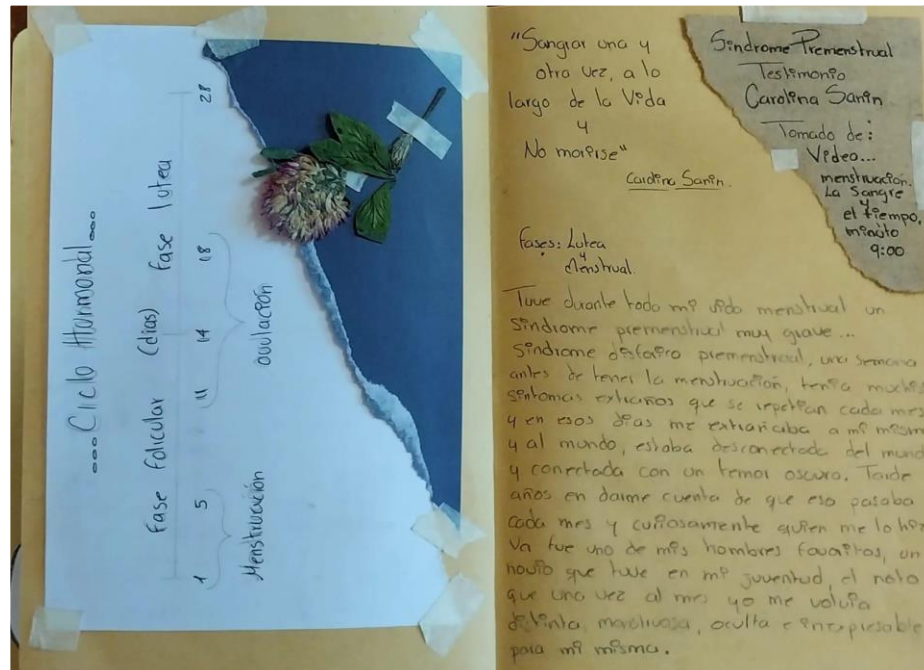 ....Ciclo Hormonal....
Fase folicular (días) Fase lutea
1 5 11 14 18 28
Menstruación ovulación
"Sangrar una y
otra vez, a lo
largo de la Vida
y
No morirse"
Carolina Sanin.
Síndrome Premenstrual
Testimonio
Carolina Sanin
Tomado de:
Video...
menstruación.
La Sangre
y
el tiempo,
minuto
9:00
fases: Lutea
y
Menstrual
Tuve durante todo mi vida menstrual un
Síndrome premenstrual muy grave...
Síndrome disfórico premenstrual, una semana
antes de tener la menstruación, tenía muchos
síntomas extraños que se repetían cada mes
y en esos días me extrañaba a mi misma
y al mundo, estaba desconectada del mund
y conectada con un temor oscuro. Tarde
años en darme cuenta de que eso pasaba
cada mes y curiosamente quien me lo hi
fue uno de mis hombres favoritos, un
novio que tuve en mi juventud, el noto
que una vez al mes yo me volvía
distinta, oculta e inexpresable
para mi misma.